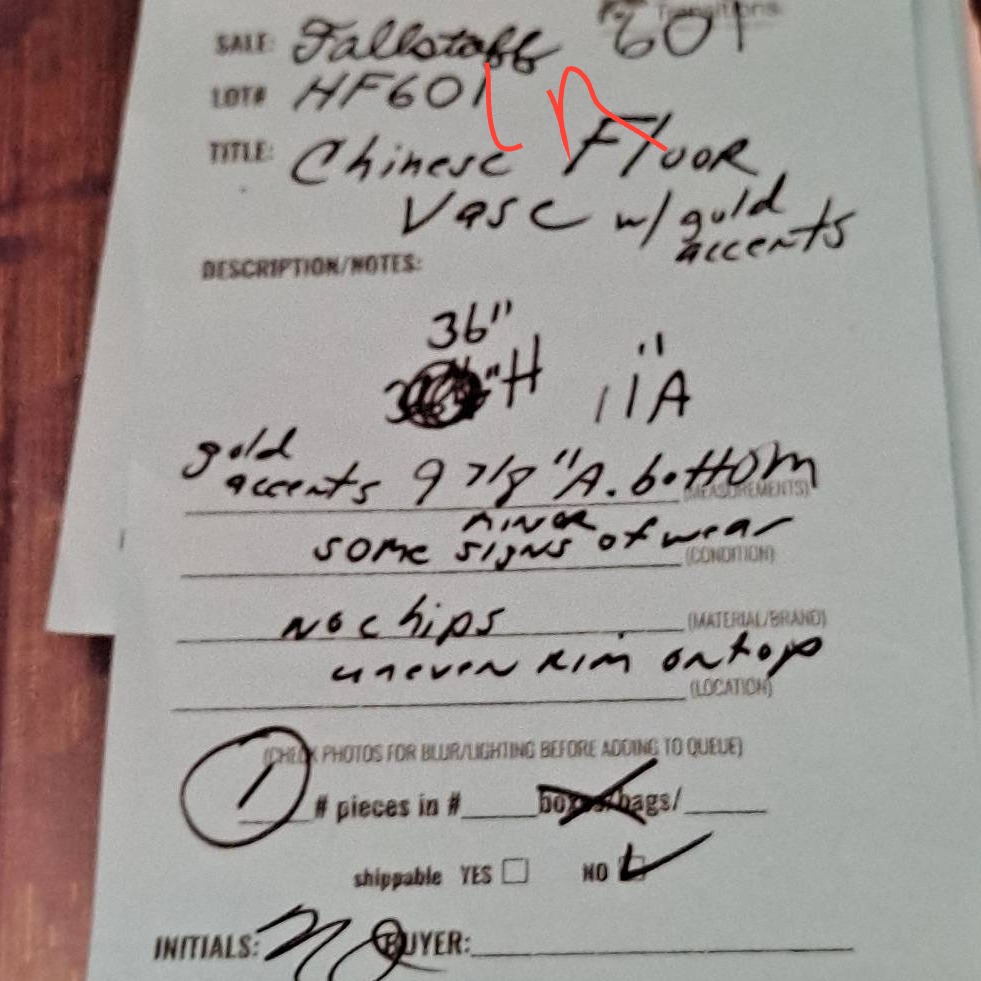 Transitions
SALE: Fallstaff 601
LOT# HF601
LR
TITLE: Chinese Floor
Vase w/ gold
accents
DESCRIPTION/NOTES:
36"
"H 11"A
gold
accents 9 7/8 "A. bottom
(MEASUREMENTS)
minor
some signs of wear
(CONDITION)
no chips (MATERIAL/BRAND)
uneven rim on top
(LOCATION)
(CHECK PHOTOS FOR BLUR/LIGHTING BEFORE ADDING TO QUEUE)
1 # pieces in # boxes/bags/
shippable YES NO
INITIALS: BUYER: